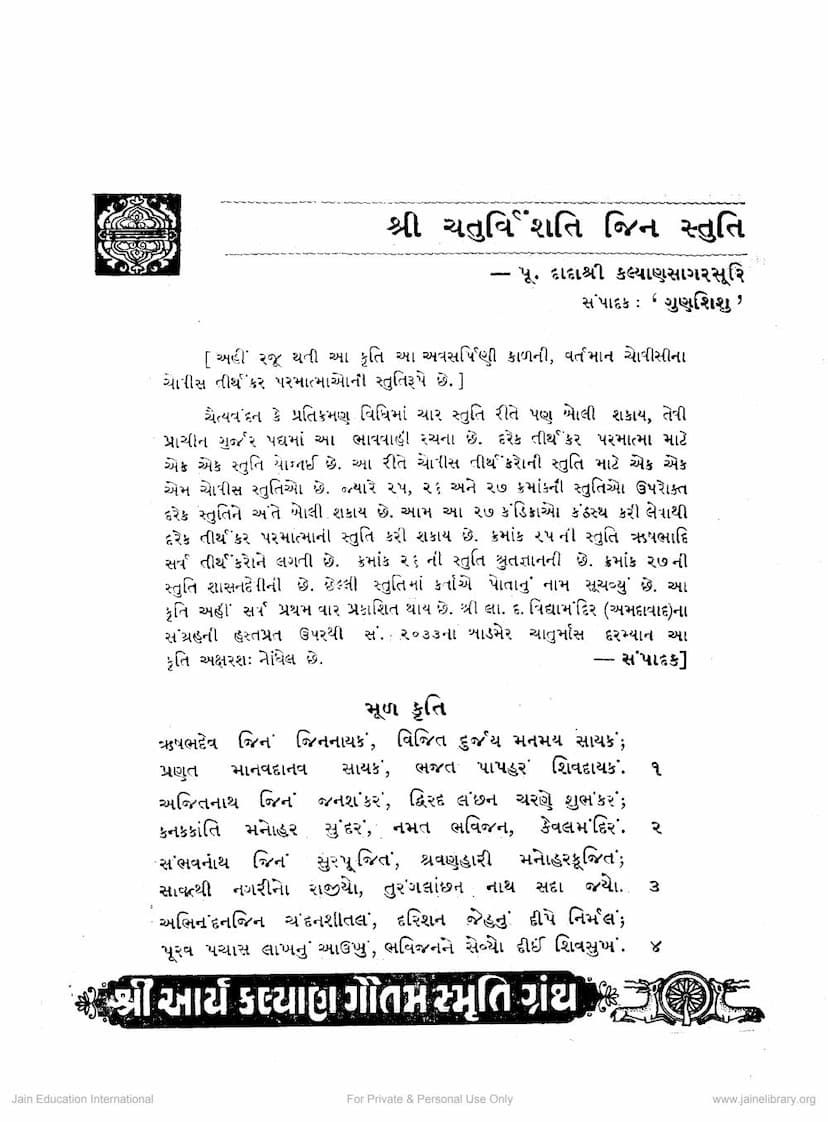 શ્રી ચતુર્વિંશતિ જિન સ્તુતિ
— પૂ. દાદાશ્રી કલ્યાણસાગરસૂરિ
સંપાદક : ‘ ગુણશિશુ ’
[ અહીં રજૂ થતી આ કૃતિ આ અવસર્પિણી કાળની, વર્તમાન ચોવીસીના
ચોવીસ તીર્થંકર પરમાત્માઓની સ્તુતિરૂપે છે. ]
ચૈત્યવંદન કે પ્રતિક્રમણ વિધિમાં ચાર સ્તુતિ રીતે પણ બોલી શકાય, તેવી
પ્રાચીન ગુર્જર પદ્યમાં આ ભાવવાહી રચના છે. દરેક તીર્થંકર પરમાત્મા માટે
એક એક સ્તુતિ યોજાઈ છે. આ રીતે ચોવીસ તીર્થંકરોની સ્તુતિ માટે એક એક
એમ ચોવીસ સ્તુતિઓ છે. જ્યારે ૨૫, ૨૬ અને ૨૭ ક્રમાંકની સ્તુતિઓ ઉપરોક્ત
દરેક સ્તુતિને અંતે બોલી શકાય છે. આમ આ ૨૭ કંડિકાઓ કંઠસ્થ કરી લેવાથી
દરેક તીર્થંકર પરમાત્માની સ્તુતિ કરી શકાય છે. ક્રમાંક ૨૫ની સ્તુતિ ઋષભાદિ
સર્વ તીર્થંકરોને લગતી છે. ક્રમાંક ૨૬ ની સ્તુતિ શ્રુતજ્ઞાનની છે. ક્રમાંક ૨૭ની
સ્તુતિ શાસનદેવીની છે. છેલ્લી સ્તુતિમાં કર્તાએ પોતાનું નામ સૂચવ્યું છે. આ
કૃતિ અહીં સર્વ પ્રથમ વાર પ્રકાશિત થાય છે. શ્રી લા. દ. વિદ્યામંદિર (અમદાવાદ)ના
સંગ્રહની હસ્તપ્રત ઉપરથી સં. ૨૦૩૩ના બાડમેર ચાતુર્માસ દરમ્યાન આ
કૃતિ અક્ષરશઃ નોંધેલ છે. — સંપાદક]
મૂળ કૃતિ
ઋષભદેવ જિનં જિનનાયકં, વિજિત દુર્જય મનમય સાયકં;
પ્રણુત માનવદાનવ સાયકં, ભજત પાપહરં શિવદાયકં. ૧
અજિતનાથ જિનં જનશંકરં, દ્વિરદ લંછન ચરણે શુભંકરં;
કનકકાંતિ મનોહર સુંદરં, નમત ભવિજન, કેવલમંદિરં. ૨
સંભવનાથ જિનં સુરપૂજિતં, શ્રવણહારી મનોહરકૂજિતં;
સાવત્થી નગરીનો રાજીયો, તુરંગલાંછન નાથ સદા જયો. ૩
અભિનંદનજિન ચંદનશીતલં, દરિશન જેહનું દીપે નિર્મલં;
પૂરવ પચાસ લાખનું આઉખું, ભવિજનને સેવ્યો દીઈ શિવસુખં. ૪
શ્રી આર્ય કલ્યાણ ગૌતમ સ્મૃતિ ગ્રંથ
Jain Education International
For Private & Personal Use Only
www.jainelibrary.org